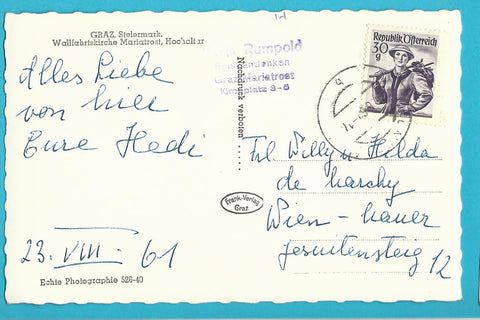 GRAZ, Steiermark.
Wallfahrtskirche Mariatrost, Hochaltar
Alles Liebe
von hier
Eure Hedi
23. VIII. 61
Echte Photographie 526-40
Nachdruck verboten
Frank-Verlag
Graz
Rumpold
Graz-Mariatrost
Kirchplatz 3-5
Republik Österreich
30
g
Frl. Willy u Hilda
de
Wien-Mauer
Jesuitensteig 12